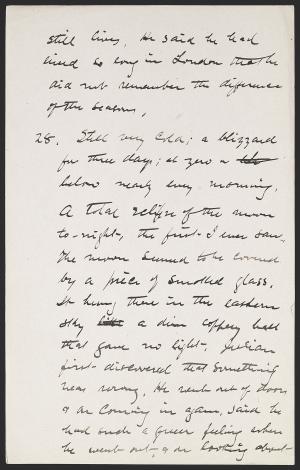 still lives. He said he had
lived so long in London that he
did not remember the difference
of the seasons.
28. Still very cold; a blizzard
for three days; at zero or
below nearly every morning.
A total eclipse of the moon
to-night, the first I ever saw.
The moon seemed to be covered
by a piece of smoked glass.
It hung there in the eastern
sky like a dim coppery ball
that gave no light. Julian
first discovered that something
was wrong. He went out of doors
& on coming in again, said he
had such a queer feeling when
he went out, & on looking about